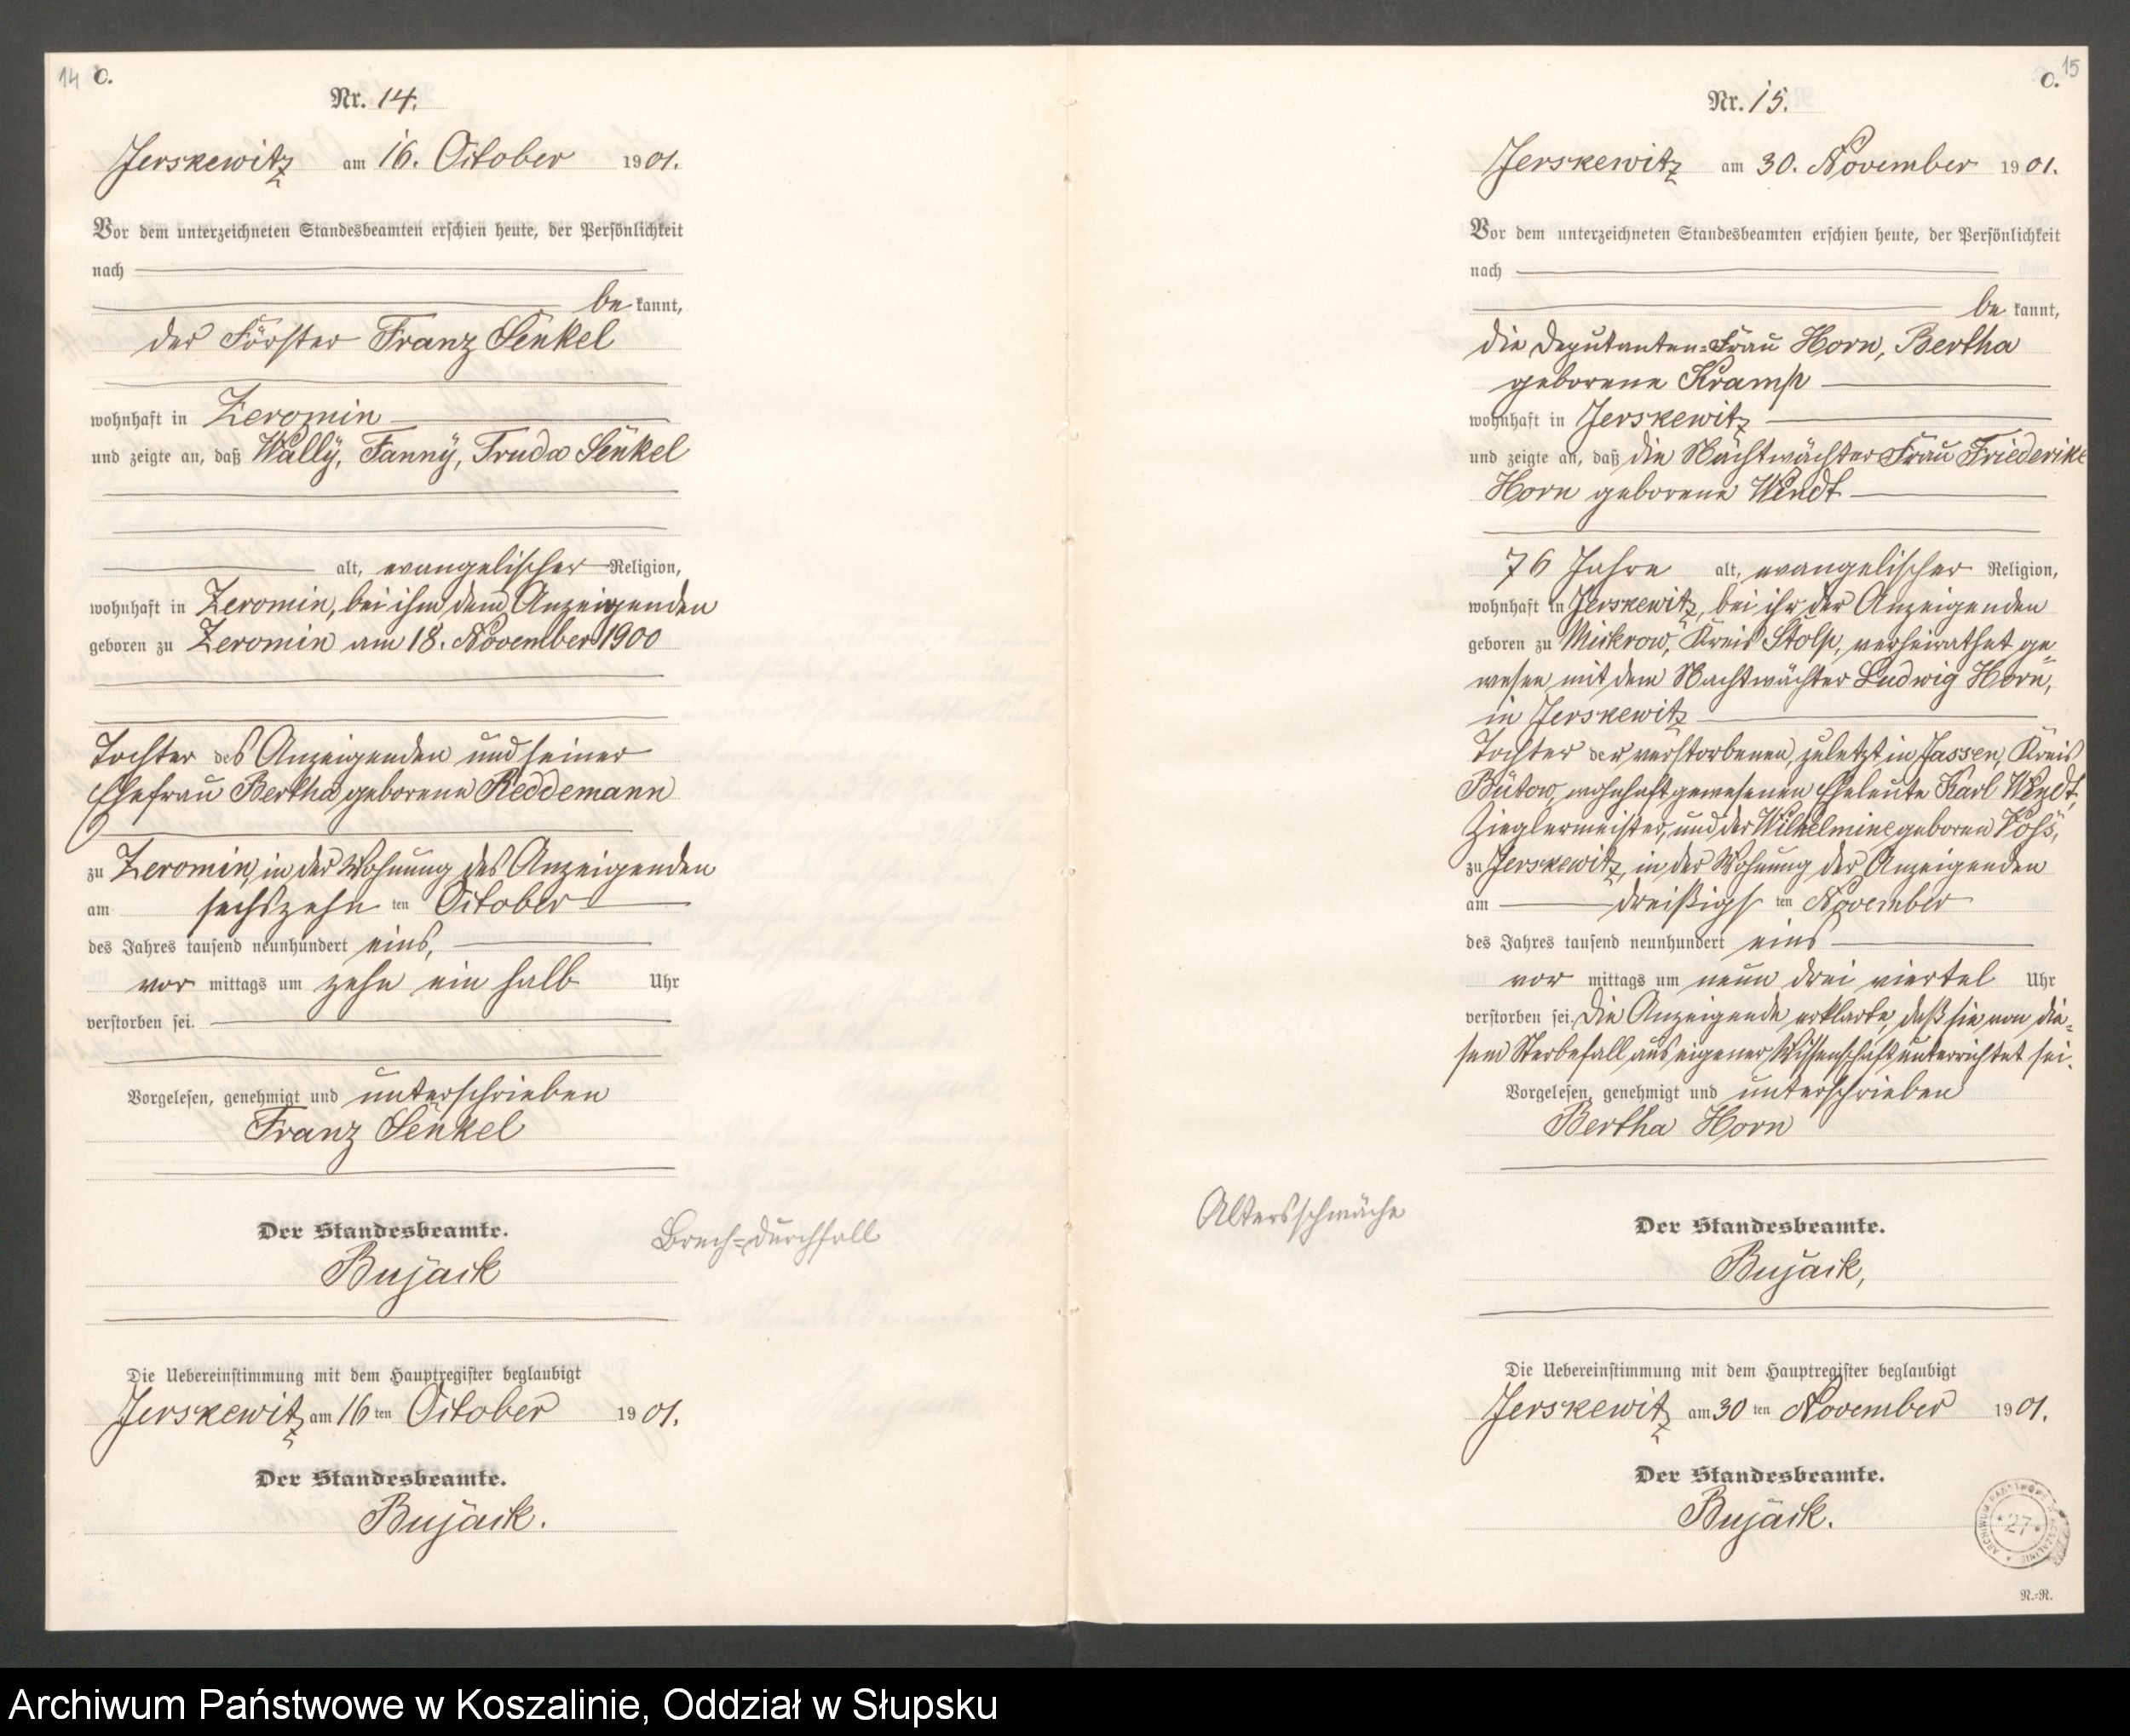 14 C.
Nr. 14.
Jerskewitz am 16. October 1901.
Vor dem unterzeichneten Standesbeamten erschien heute, der Persönlichkeit
nach
be kannt,
der Förster Franz Senkel
wohnhaft in Zeromin
und zeigte an, daß Wally, Fanny, Truda Senkel
alt, evangelischer Religion,
wohnhaft in Zeromin, bei ihm, dem Anzeigenden
geboren zu Zeromin am 18. November 1900
Tochter des Anzeigenden und seiner
Ehefrau Bertha geborene Reddemann
zu Zeromin, in der Wohnung des Anzeigenden
am sechszehn ten October
des Jahres tausend neunhundert eins,
vor mittags um zehn ein halb Uhr
verstorben sei.
Vorgelesen, genehmigt und unterschrieben
Franz Senkel
Der Standesbeamte.
Bujack
Brech-durchfall
Die Uebereinstimmung mit dem Hauptregister beglaubigt
Jerskewitz am 16 ten October 1901.
Der Standesbeamte.
Bujack.
C. 15
Nr. 15.
Jerskewitz am 30. November 1901.
Vor dem unterzeichneten Standesbeamten erschien heute, der Persönlichkeit
nach
be kannt,
die Deputanten-Frau Horn, Bertha
geborene Kramp
wohnhaft in Jerskewitz
und zeigte an, daß die Nachtwächter Frau Friederike
Horn geborene Wendt
76 Jahre alt, evangelischer Religion,
wohnhaft in Jerskewitz, bei ihr der Anzeigenden
geboren zu Mickrow, Kreis Stolp, verheirathet ge=
wesen mit dem Nachtwächter Ludwig Horn,
in Jerskewitz
Tochter der verstorbenen, zuletzt in Jassen, Kreis
Bütow, wohnhaft gewesenen Eheleute Karl Wendt,
Zieglermeister, und der Wilhelmine geboren Voß,
zu Jerskewitz, in der Wohnung der Anzeigenden
am dreißigs ten November
des Jahres tausend neunhundert eins
vor mittags um neun drei viertel Uhr
verstorben sei. Die Anzeigende erklärte, daß sie von die=
sem Sterbefall aus eigener Wissenschaft unterrichtet sei.
Vorgelesen, genehmigt und unterschrieben
Bertha Horn
Altersschwäche
Der Standesbeamte.
Bujack,
Die Uebereinstimmung mit dem Hauptregister beglaubigt
Jerskewitz am 30 ten November 1901.
Der Standesbeamte.
Bujack.
ARCHIWUM PAŃSTWOWE W KOSZALINIE
* 27 *
N.-R.
Archiwum Państwowe w Koszalinie, Oddział w Słupsku